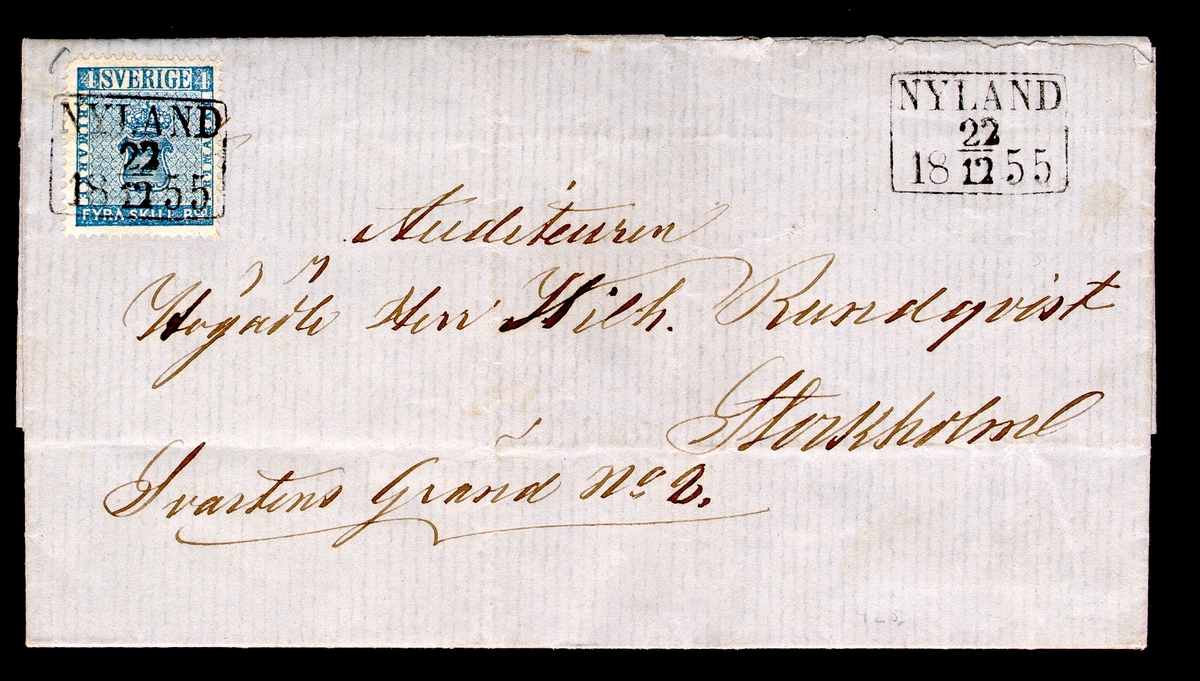 4 SVERIGE 4
FYRA SKILL. Bco
NYLAND
22
18 12 55
NYLAND
22
18 12 55
Auditeuren
Högädle Herr Wilh. Rundqvist
Stockholm
Svartens Gränd No 2.